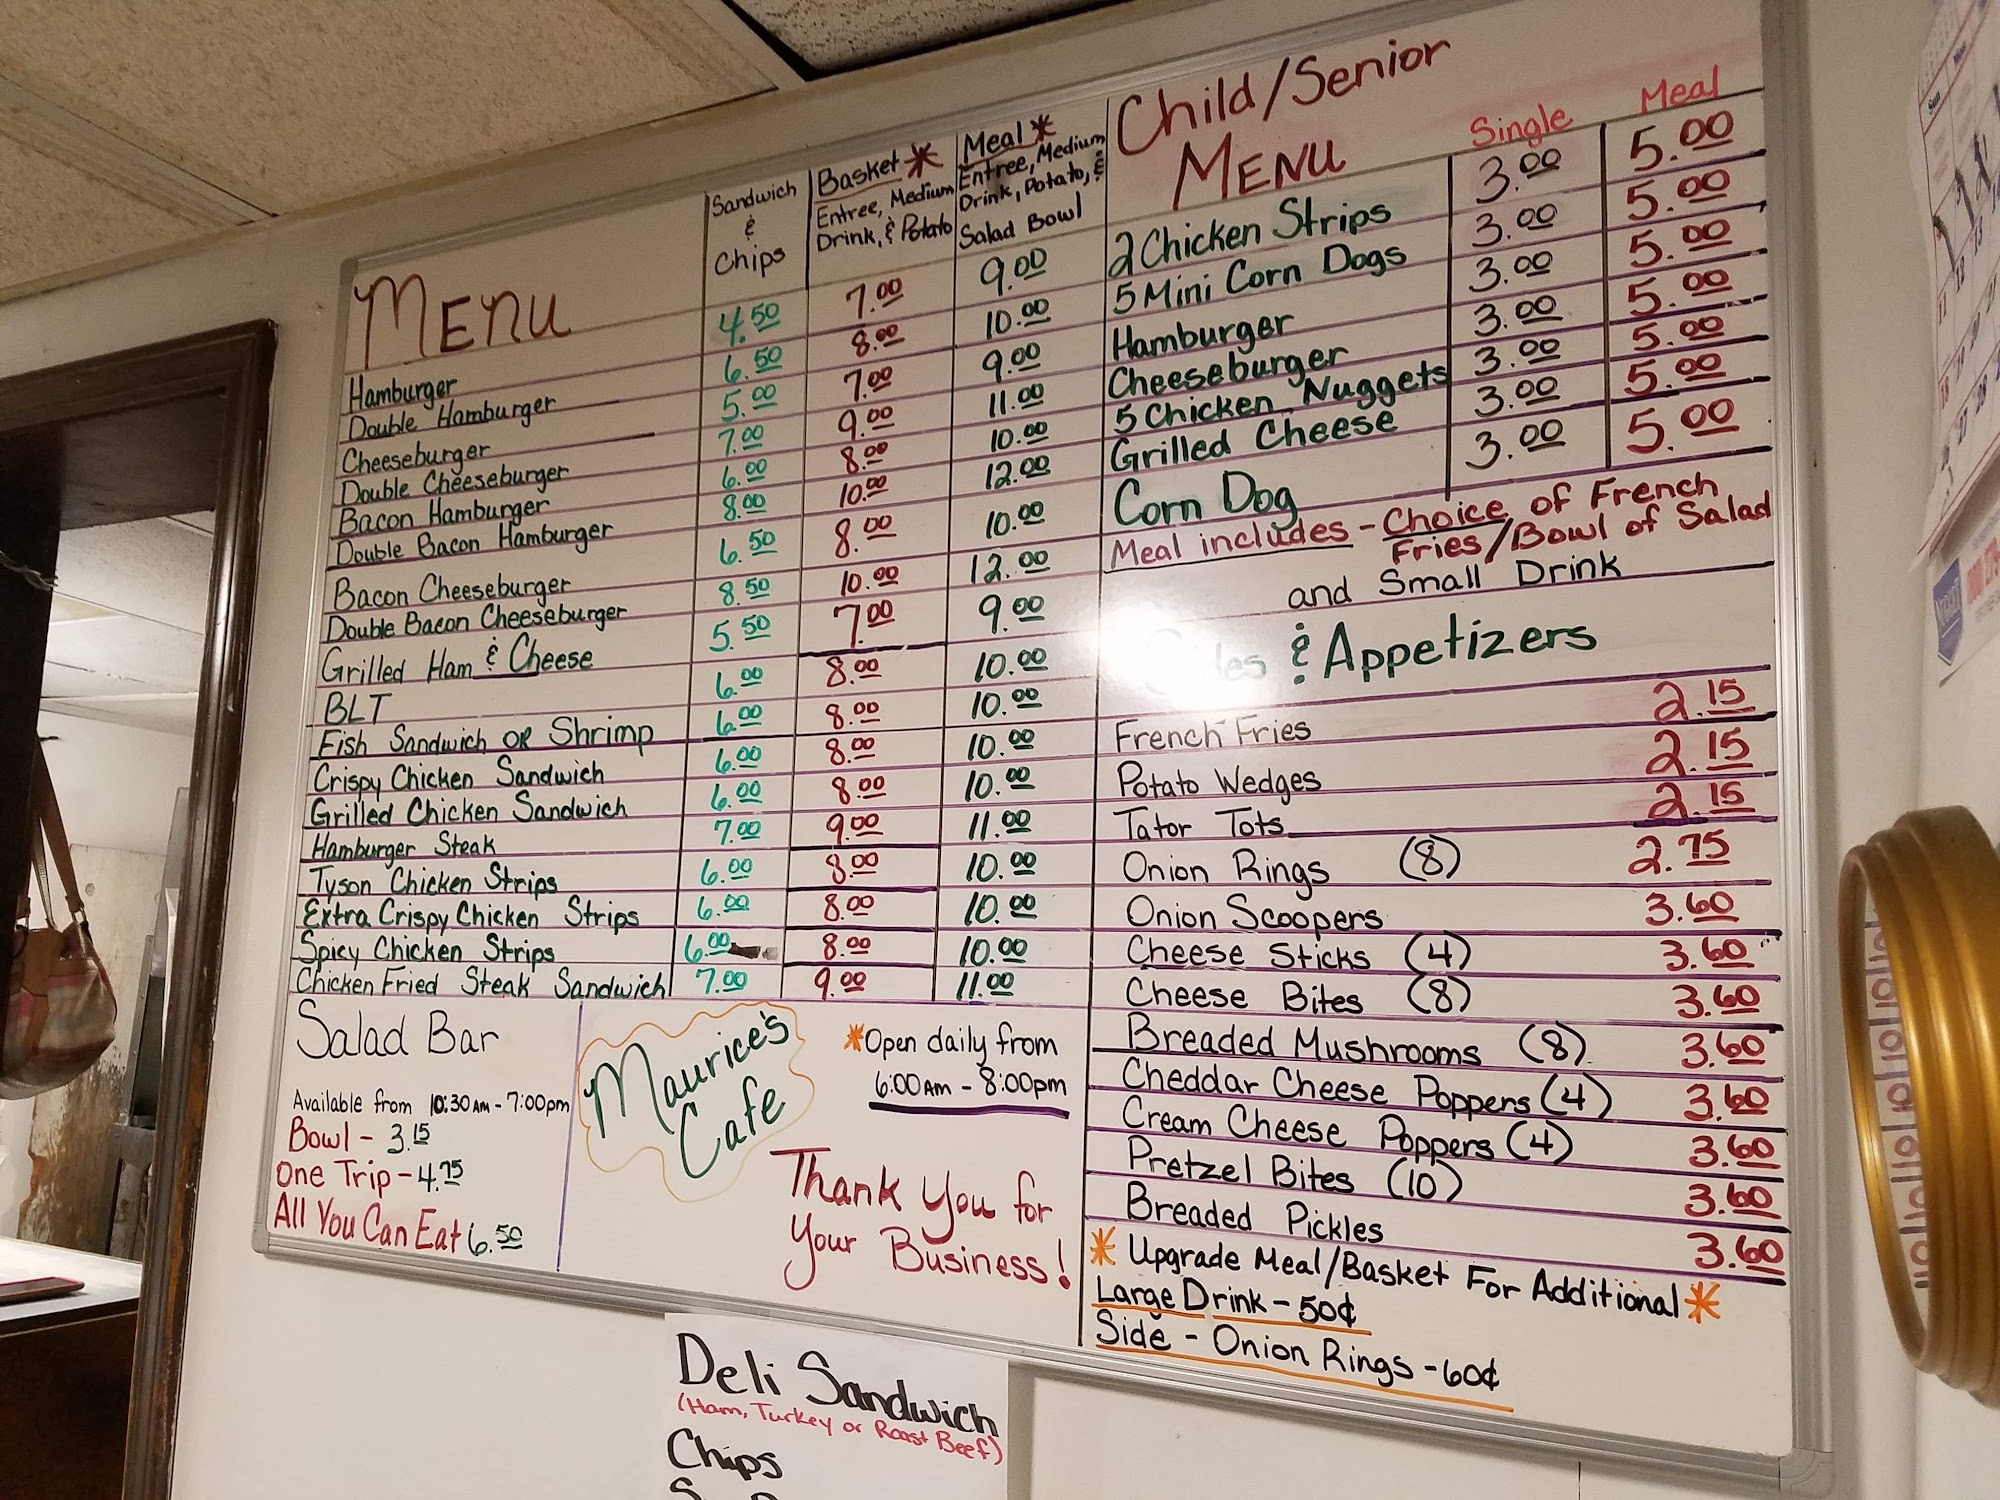 MENU
Sandwich & Chips
Basket * Entree, Medium Drink, & Potato
Meal * Entree, Medium Drink, Potato, & Salad Bowl
Hamburger 4.50 7.00 9.00
Double Hamburger 6.50 8.00 10.00
Cheeseburger 5.00 7.00 9.00
Double Cheeseburger 7.00 9.00 11.00
Bacon Hamburger 6.00 8.00 10.00
Double Bacon Hamburger 8.00 10.00 12.00
Bacon Cheeseburger 6.50 8.00 10.00
Double Bacon Cheeseburger 8.50 10.00 12.00
Grilled Ham & Cheese 5.50 7.00 9.00
BLT 6.00 8.00 10.00
Fish Sandwich OR Shrimp 6.00 8.00 10.00
Crispy Chicken Sandwich 6.00 8.00 10.00
Grilled Chicken Sandwich 6.00 8.00 10.00
Hamburger Steak 7.00 9.00 11.00
Tyson Chicken Strips 6.00 8.00 10.00
Extra Crispy Chicken Strips 6.00 8.00 10.00
Spicy Chicken Strips 6.00 8.00 10.00
Chicken Fried Steak Sandwich 7.00 9.00 11.00
Salad Bar
Available from 10:30AM - 7:00pm
Bowl - 3.15
One Trip - 4.75
All You Can Eat 6.50
Maurice's
Cafe
*Open daily from
6:00AM - 8:00pm
Thank You for
Your Business!
Child/Senior
MENU
Single Meal
2 Chicken Strips 3.00 5.00
5 Mini Corn Dogs 3.00 5.00
Hamburger 3.00 5.00
Cheeseburger 3.00 5.00
5 Chicken Nuggets 3.00 5.00
Grilled Cheese 3.00 5.00
Corn Dog 3.00 5.00
Meal includes - Choice of French
Fries/Bowl of Salad
and Small Drink
Sides & Appetizers
French Fries 2.15
Potato Wedges 2.15
Tator Tots 2.15
Onion Rings (8) 2.75
Onion Scoopers 3.60
Cheese Sticks (4) 3.60
Cheese Bites (8) 3.60
Breaded Mushrooms (8) 3.60
Cheddar Cheese Poppers (4) 3.60
Cream Cheese Poppers (4) 3.60
Pretzel Bites (10) 3.60
Breaded Pickles 3.60
* Upgrade Meal/Basket For Additional *
Large Drink - 50¢
Side - Onion Rings - 60¢
Deli Sandwich
(Ham, Turkey or Roast Beef)
Chips